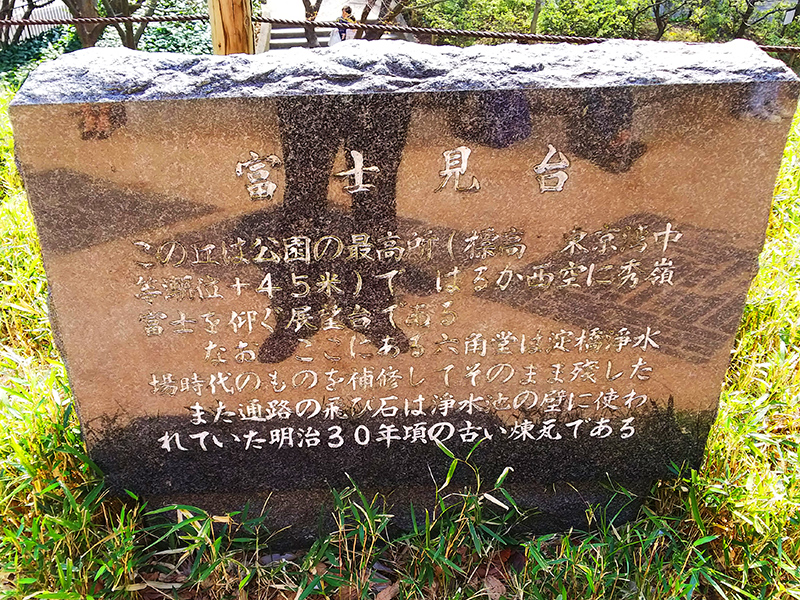 富士見台
この丘は公園の最高所(標高　東京湾中
等潮位+45米)で　はるか西空に秀嶺
富士を仰ぐ展望台である
なお　ここにある六角堂は淀橋浄水
場時代のものを補修してそのまま残した
また通路の飛び石は浄水池の壁に使わ
れていた明治30年項の古い煉瓦である